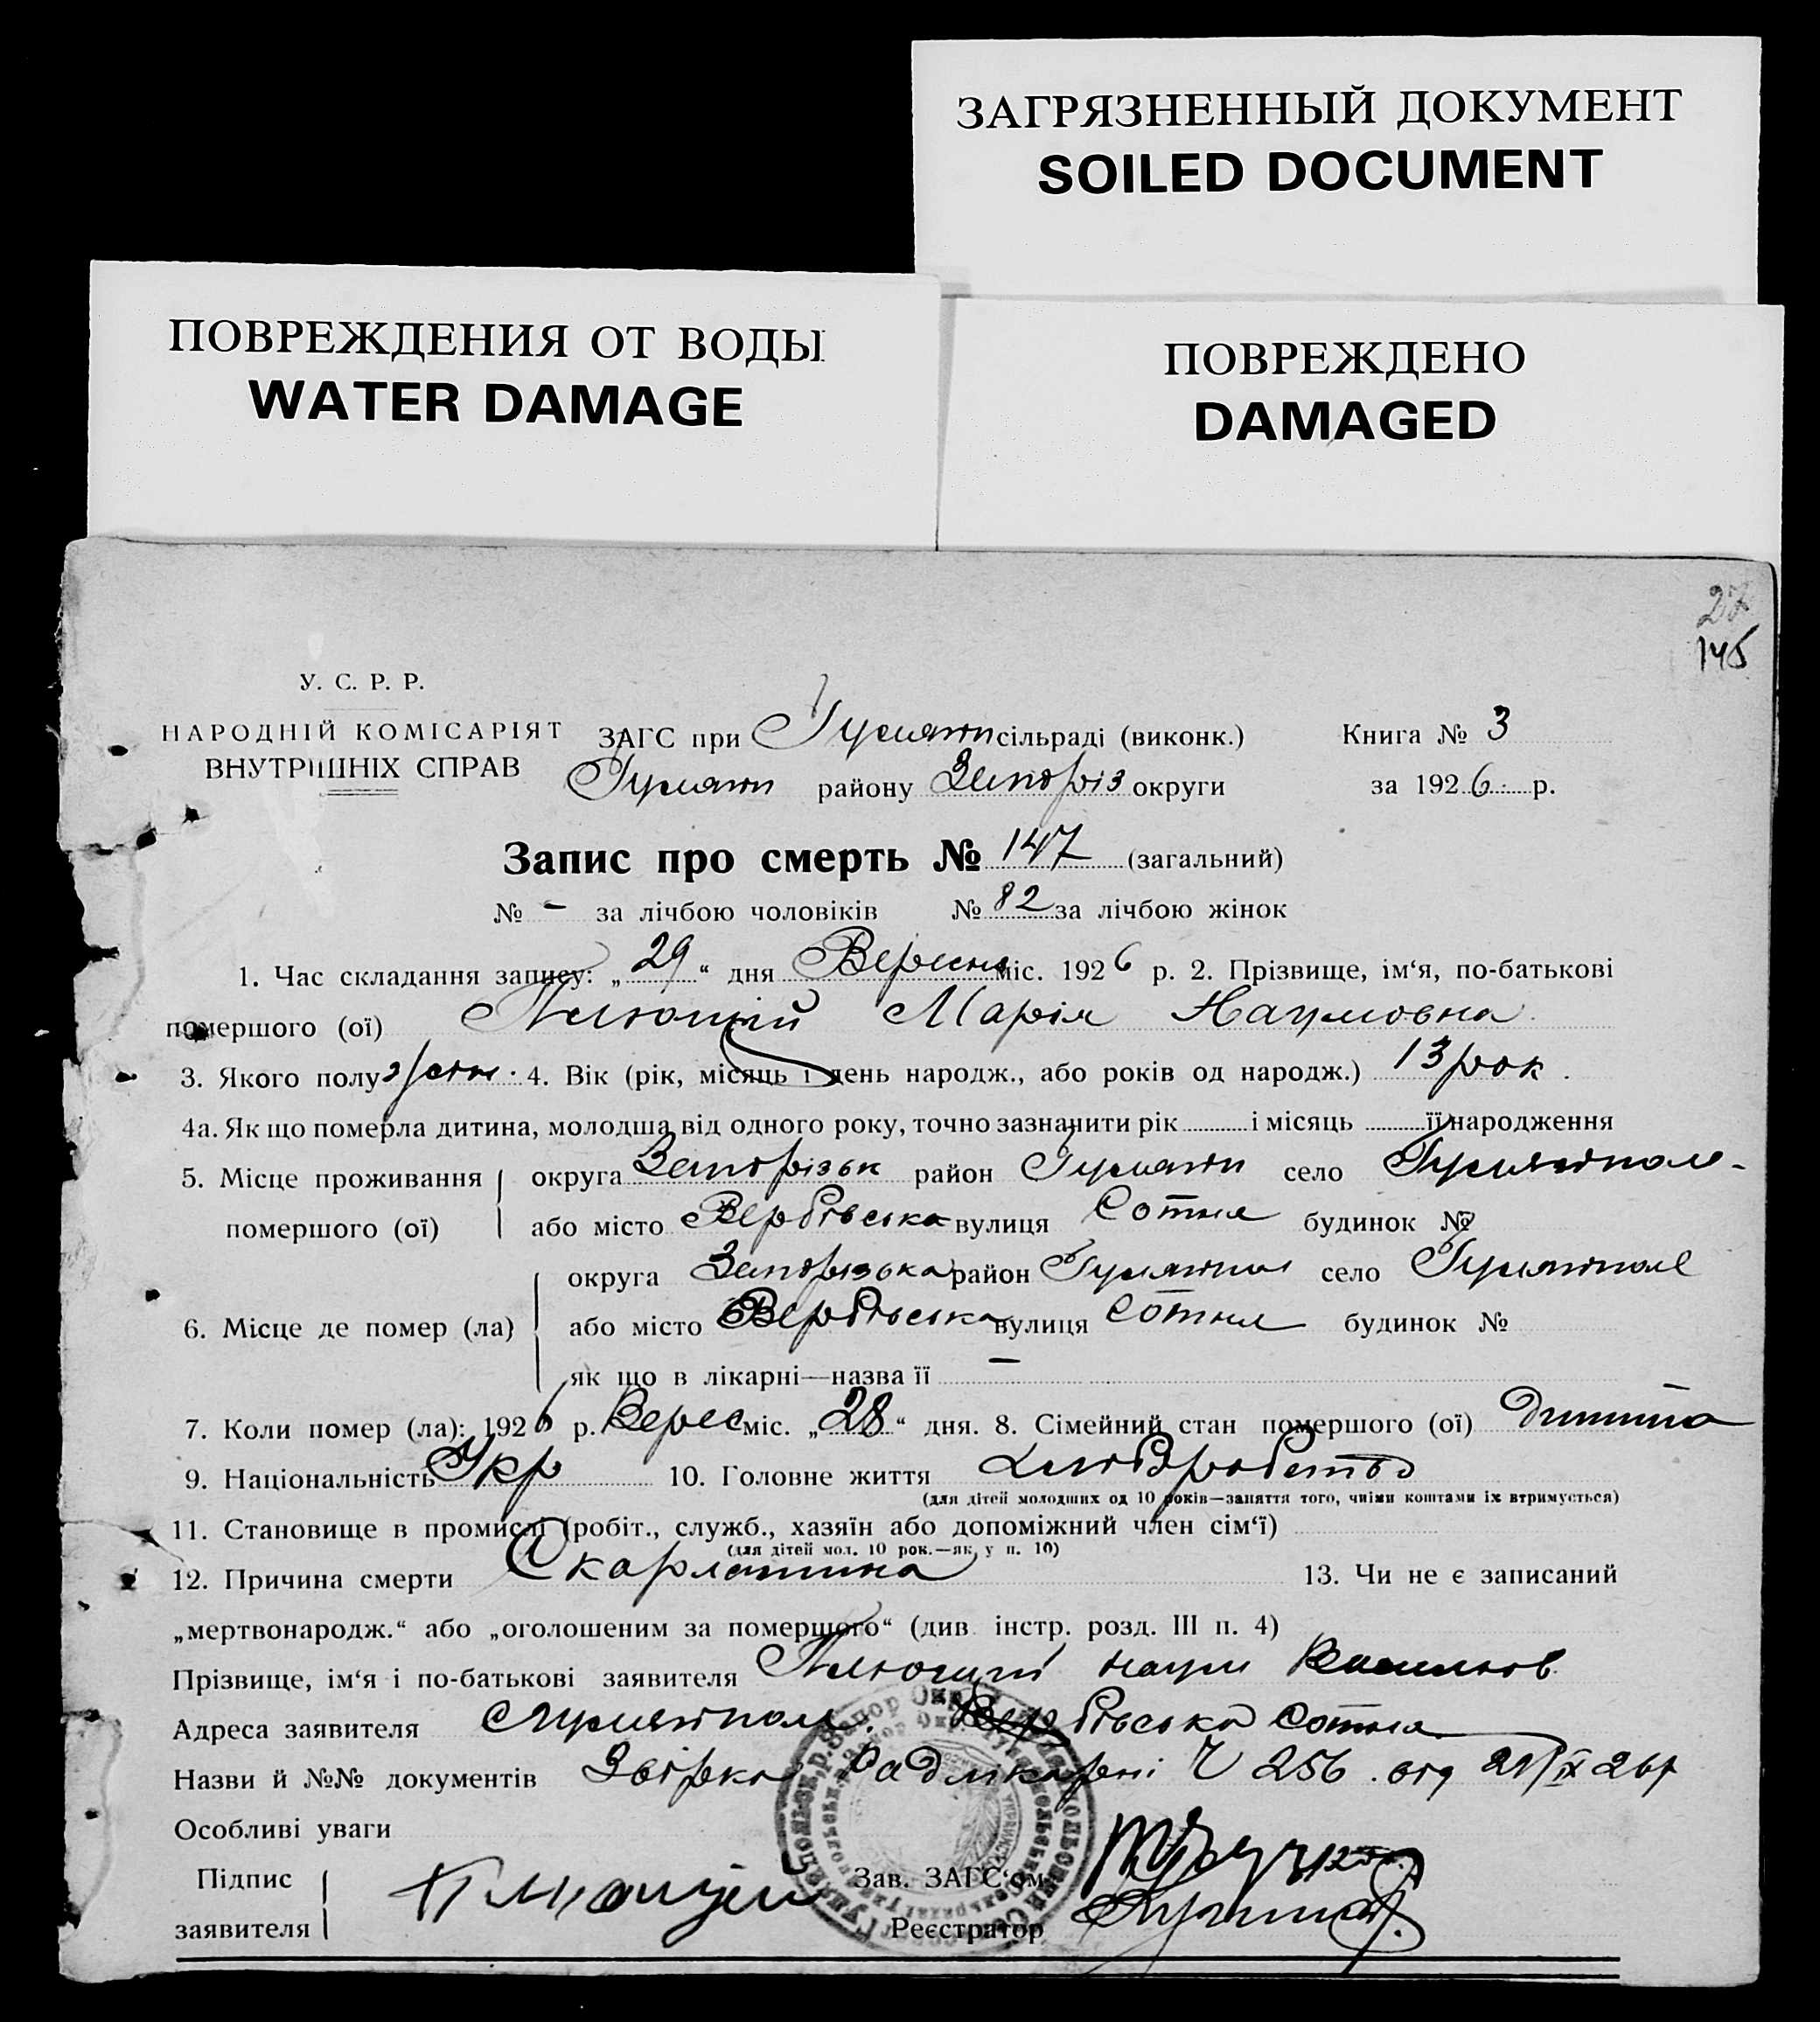 ЗАГРЯЗНЕННЫЙ ДОКУМЕНТ
SOILED DOCUMENT
ПОВРЕЖДЕНИЯ ОТ ВОДЫ
WATER DAMAGE
ПОВРЕЖДЕНО
DAMAGED
27
145
У. С. Р. Р.
НАРОДНІЙ КОМІСАРІЯТ
ВНУТРІШНІХ СПРАВ
ЗАГС при Гуляйп сільраді (виконк.) Книга № 3
Гуляйп району Запоріз округи за 1926 р.
Запис про смерть № 147 (загальний)
№ - за лічбою чоловіків № 82 за лічбою жінок
1. Час складання запису: „29“ дня Вересня міс. 1926 р. 2. Прізвище, ім‘я, по-батькові
помершого (ої) Клюший Марія Наумовна
3. Якого полу жін. 4. Вік (рік, місяць і день народж., або років од народж.) 13 рок.
4а. Як що померла дитина, молодша від одного року, точно зазначити рік і місяць її народження
5. Місце проживання округа Запорізьк район Гуляйп село Гуляйполе-
помершого (ої) або місто Вербівська вулиця Сотня будинок №
округа Запорізька район Гуляйпол село Гуляйполе
6. Місце де помер (ла) або місто Вербівська вулиця Сотня будинок №
як що в лікарні—назва її —
7. Коли помер (ла): 1926 р. Верес міс. „28“ дня. 8. Сімейний стан помершого (ої) Дитина
9. Національність Укр 10. Головне життя Хліборобство
(для дітей молодших од 10 років—заняття того, чиїми коштами їх втримується)
11. Становище в промислі (робіт., служб., хазяїн або допоміжний член сім‘ї)
(для дітей мол. 10 рок.—як у п. 10)
12. Причина смерти Скарлатина 13. Чи не є записаний
„мертвонародж.“ або „оголошеним за помершого“ (див. інстр. розд. III п. 4)
Прізвище, ім‘я і по-батькові заявителя Наум
Адреса заявителя Гуляйполе Вербівська Сотня
Назви й №№ документів Звірка Радлікарні Ч 256 від 29/IX 26р
Особливі уваги
Підпис
заявителя
Зав. ЗАГС‘ом
Реєстратор